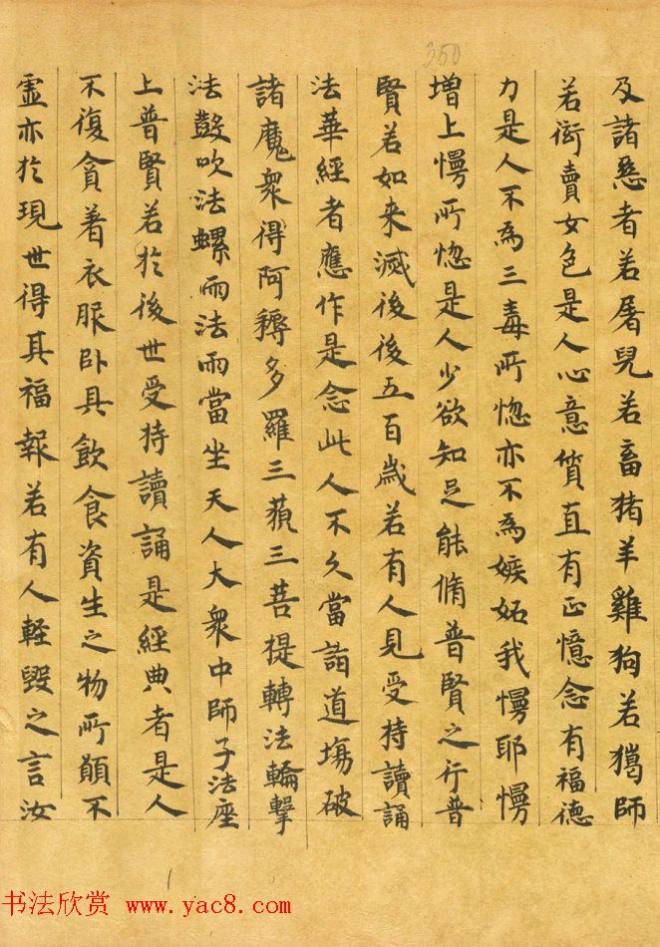 350
及諸惡者若屠兒若畜猪羊雞狗若獦師
若衒賣女色是人心意質直有正憶念有福德
力是人不為三毒所惚亦不為嫉妬我慢耶慢
增上慢所惚是人少欲知足能脩普賢之行普
賢若如来滅後後五百歲若有人見受持讀誦
法華經者應作是念此人不久當詣道場破
諸魔衆得阿耨多羅三藐三菩提轉法輪擊
法鼓吹法螺雨法雨當坐天人大衆中師子法座
上普賢若於後世受持讀誦是經典者是人
不復貪著衣服卧具飲食資生之物所願不
虛亦於現世得其福報若有人軽毀之言汝
书法欣赏 www.yac8.com